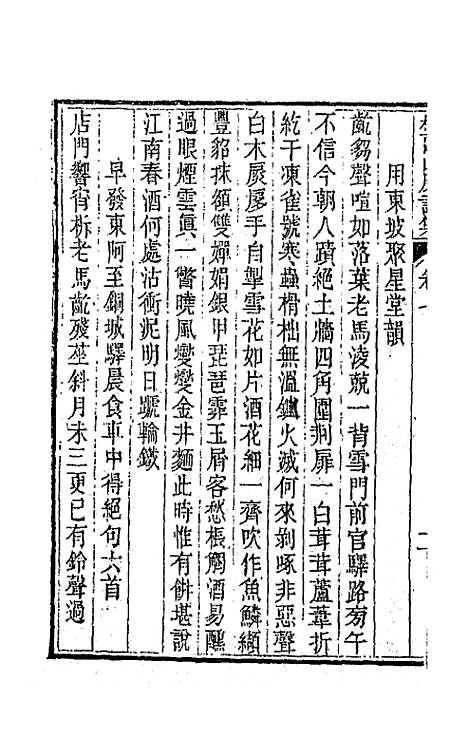 用東坡聚星堂韻
齕芻聲喧如落葉老馬凌兢一背雪門前官驛路旁午
不信今朝人蹟絕土牆四角圍荆扉一白茸茸蘆葦折
紇干凍雀號寒蟲榾柮無溫鑪火滅何來剝啄非惡聲
白木扊扅手自掣雪花如片酒花細一齊吹作魚鱗纈
豐貂抹額雙嬋娟銀甲琵琶霏玉屑客愁根觸酒易醺
過眼煙雲眞一瞥曉風變變金井麵此時惟有餅堪說
江南春酒何處沽衝泥明日虩輪鐵
早發東阿至銅城驛晨食車中得絕句六首
店門響宵柝老馬齕殘莝斜月未三更已有鈴聲過